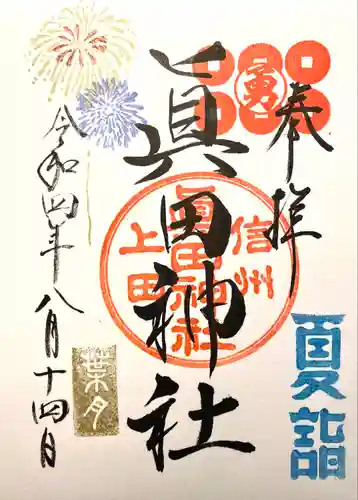 奉拝
勇
夏詣
眞田神社
信州
上田
眞田神社
令和四年八月十四日
葉月